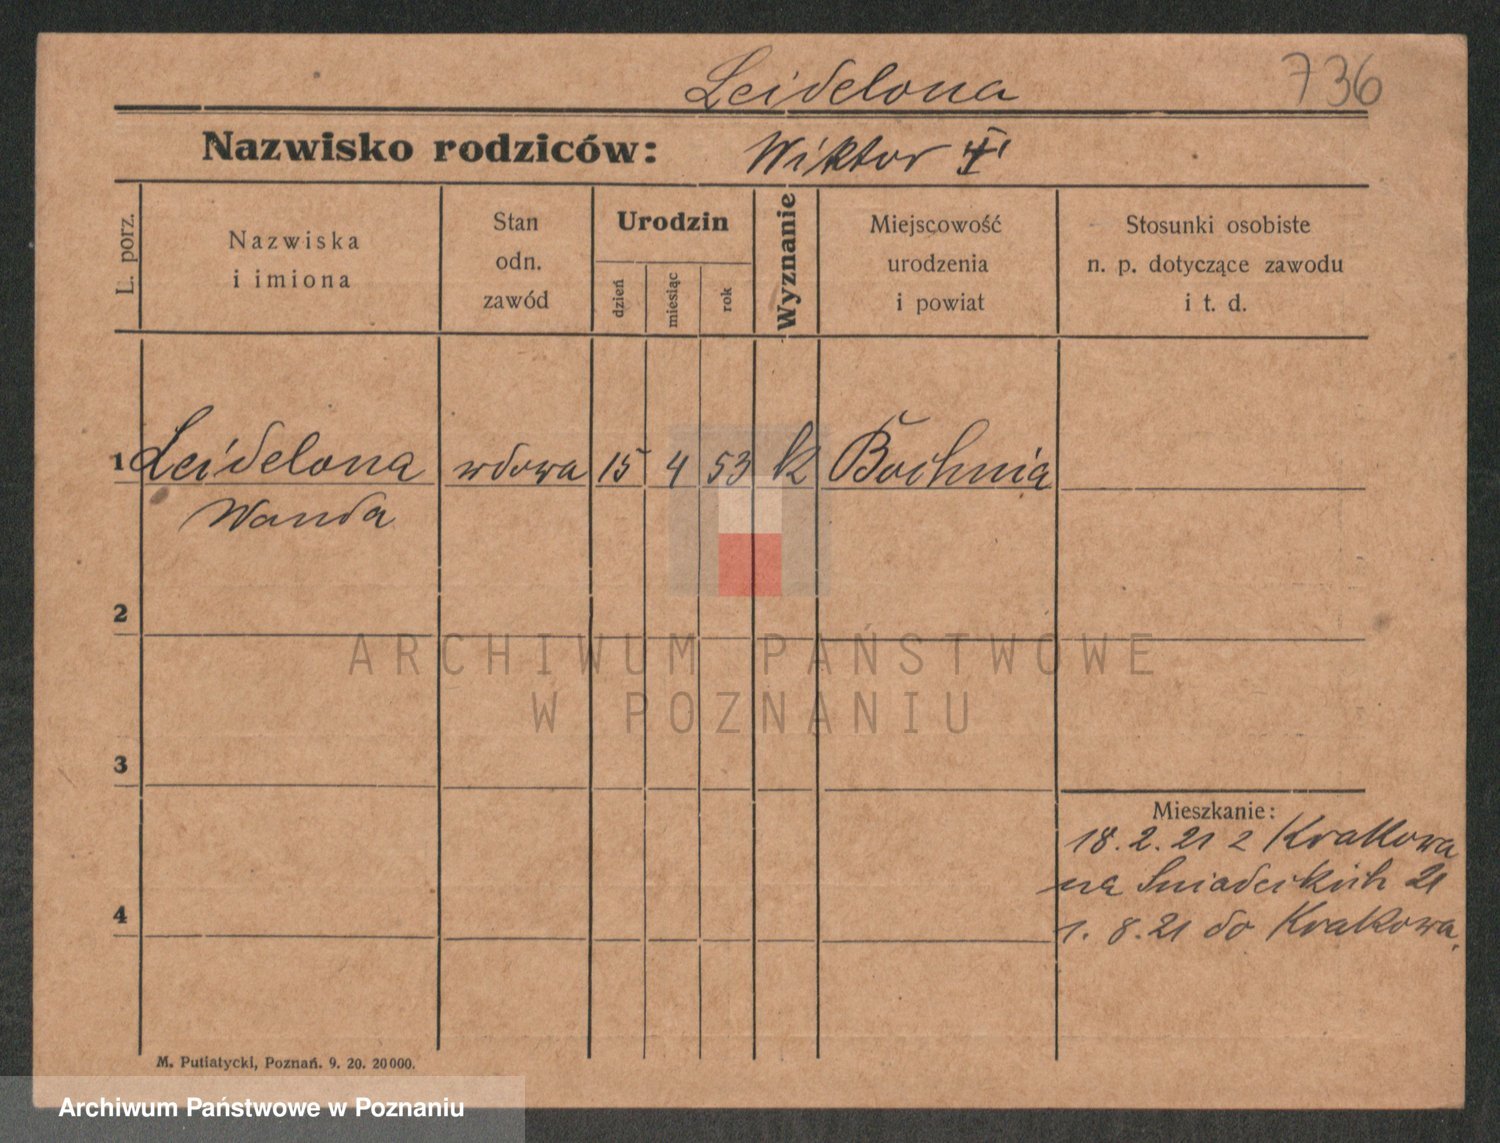 Leidelona
736
Nazwisko rodziców: Wiktor
L. porz.
Nazwiska
i imiona
Stan
odn.
zawód
Urodzin
dzień
miesiąc
rok
Wyznanie
Miejscowość
urodzenia
i powiat
Stosunki osobiste
n. p. dotyczące zawodu
i t. d.
1 Leidelona wdowa 15 4 53 k Bochnia
Wanda
2
3
4
Mieszkanie:
18.2.21 z Krakowa
na Sniadeckich 21
1.8.21 do Krakowa.
M. Putiatycki, Poznań. 9. 20. 20000.
ARCHIWUM PAŃSTWOWE
W POZNANIU
Archiwum Państwowe w Poznaniu